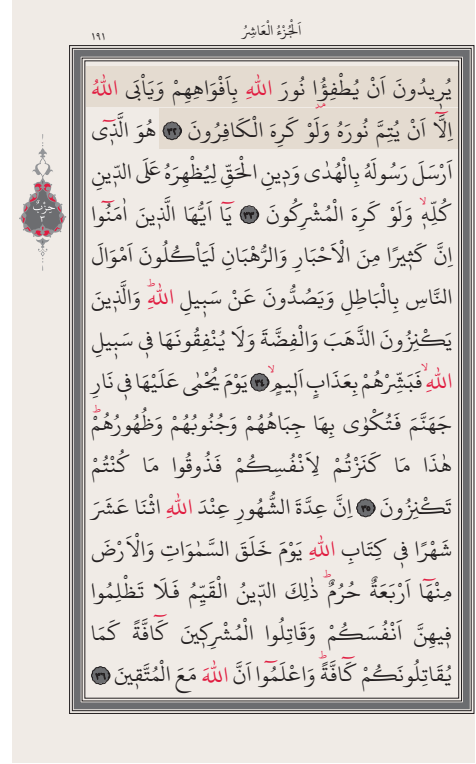 اَلْجُزْءُ الْعَاشِرُ
١٩١
يُر۪يدُونَ اَنْ يُطْفِؤُ۫ا نُورَ اللّٰهِ بِاَفْوَاهِهِمْ وَيَأْبَى اللّٰهُ
اِلَّٓا اَنْ يُتِمَّ نُورَهُ وَلَوْ كَرِهَ الْكَافِرُونَ ﴿٣٢﴾ هُوَ الَّذ۪ٓي
اَرْسَلَ رَسُولَهُ بِالْهُدٰى وَد۪ينِ الْحَقِّ لِيُظْهِرَهُ عَلَى الدّ۪ينِ
كُلِّه۪ۙ وَلَوْ كَرِهَ الْمُشْرِكُونَ ﴿٣٣﴾ يَٓا اَيُّهَا الَّذ۪ينَ اٰمَنُٓوا
اِنَّ كَث۪يرًا مِنَ الْاَحْبَارِ وَالرُّهْبَانِ لَيَأْكُلُونَ اَمْوَالَ
النَّاسِ بِالْبَاطِلِ وَيَصُدُّونَ عَنْ سَب۪يلِ اللّٰهِۜ وَالَّذ۪ينَ
يَكْنِزُونَ الذَّهَبَ وَالْفِضَّةَ وَلَا يُنْفِقُونَهَا ف۪ي سَب۪يلِ
اللّٰهِۙ فَبَشِّرْهُمْ بِعَذَابٍ اَل۪يمٍۙ ﴿٣٤﴾ يَوْمَ يُحْمٰى عَلَيْهَا ف۪ي نَارِ
جَهَنَّمَ فَتُكْوٰى بِهَا جِبَاهُهُمْ وَجُنُوبُهُمْ وَظُهُورُهُمْۜ
هٰذَا مَا كَنَزْتُمْ لِاَنْفُسِكُمْ فَذُوقُوا مَا كُنْتُمْ
تَكْنِزُونَ ﴿٣٥﴾ اِنَّ عِدَّةَ الشُّهُورِ عِنْدَ اللّٰهِ اثْنَا عَشَرَ
شَهْرًا ف۪ي كِتَابِ اللّٰهِ يَوْمَ خَلَقَ السَّمٰوَاتِ وَالْاَرْضَ
مِنْهَٓا اَرْبَعَةٌ حُرُمٌۜ ذٰلِكَ الدّ۪ينُ الْقَيِّمُ فَلَا تَظْلِمُوا
ف۪يهِنَّ اَنْفُسَكُمْ وَقَاتِلُوا الْمُشْرِك۪ينَ كَٓافَّةً كَمَا
يُقَاتِلُونَكُمْ كَٓافَّةًۜ وَاعْلَمُٓوا اَنَّ اللّٰهَ مَعَ الْمُتَّق۪ينَ ﴿٣٦﴾
حِزْب
٢